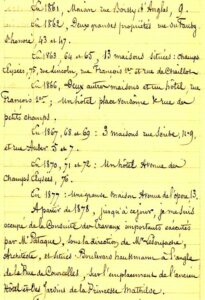 En 1861, Maison rue Boissy d'Anglas, 9.
En 1862, Deux grandes propriétés rue du Faubg
St honoré 43 et 47.
En 1863, 64 et 65. 13 maisons sitices: champs
Elysées, 75, rue Lincoln, rue François 1er et rue de Chaillot.
En 1866, Deux autres maisons et un hôtel, rue
François 1er; Un hôtel place vendome & rue des
petits champs.
En 1867, 68 et 69: 3 maisons rue Scribe, No 9,
et rue Auber 5 et 7.
En 1870, 71 et 72: Un hôtel Avenue des
Champs Elysées, 76.
En 1877: Une grande maison Avenue de l'opera 13.
A partir de 1878, jusqu'à ce jour, je me suis
occupé de la Conduite des travaux importants exécutés
par Mr, sous la direction de Mr
Architecte, et situés Boulevard haussmann à l'angle
de la Rue de Courcelles sur l'emplacement de l'ancien
Hôtel et des Jardins de la Princesse Mathilde.